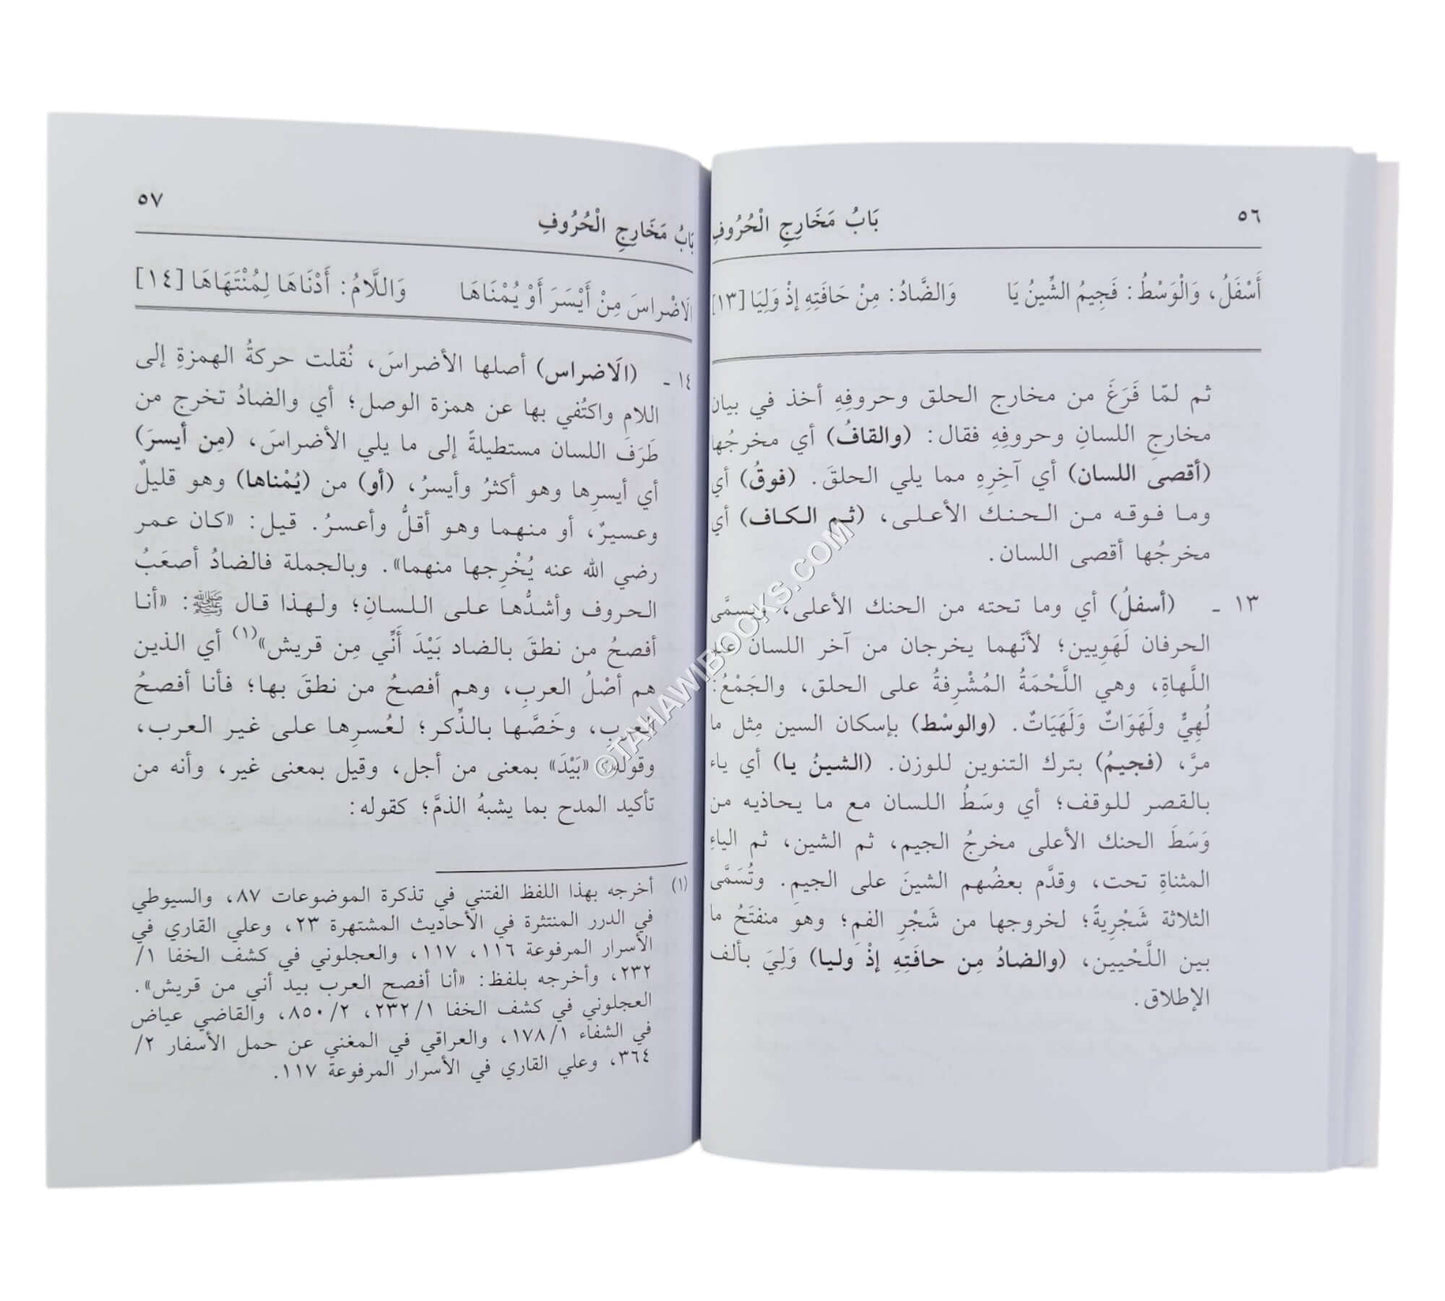 ٥٦
بَابُ مَخَارِجِ الْحُرُوفِ
أَسْفَلُ، وَالْوَسْطُ: فَجِيمُ الشِّينُ يَا وَالضَّادُ: مِنْ حَافَتِهِ إذْ وَلِيَا [١٣]
ثم لمّا فَرَغَ من مخارج الحلق وحروفِهِ أخذ في بيان
مخارجِ اللسانِ وحروفِهِ فقال: (والقافُ) أي مخرجُها
(أقصى اللسان) أي آخِرِهِ مما يلي الحلقَ. (فوقُ) أي
وما فوقه من الحنك الأعلى، (ثم الكاف) أي
مخرجُها أقصى اللسان.
١٣ ـ (أسفلُ) أي وما تحته من الحنك الأعلى، ويسمَّى
الحرفان لَهَوِيين؛ لأنّهما يخرجان من آخر اللسان عند
اللَّهاةِ، وهي اللَّحْمَةُ المُشْرِفةُ على الحلق، والجَمْعُ:
لُهِيٌّ ولَهَوَاتٌ وَلَهَيَاتٌ. (والوسْط) بإسكان السين مِثل ما
مرَّ، (فجيمُ) بترك التنوين للوزن. (الشينُ يا) أي ياء
بالقصر للوقف؛ أي وسَطُ اللسان مع ما يحاذيه من
وَسَطَ الحنك الأعلى مخرجُ الجيم، ثم الشين، ثم الياءِ
المثناةِ تحت، وقدَّم بعضُهم الشينَ على الجيمِ. وتُسَمَّى
الثلاثة شَجْرِيةً؛ لخروجها من شَجْرِ الفمِ؛ وهو منفتَحُ ما
بين اللَّحْيين، (والضادُ مِن حافَتِهِ إذْ وليا) وَلِيَ بألف
الإطلاق.
٥٧
بَابُ مَخَارِجِ الْحُرُوفِ
الَاضْرَاسَ مِنْ أَيْسَرَ أَوْ يُمْنَاهَا وَاللَّامُ: أَدْنَاهَا لِمُنْتَهَاهَا [١٤]
١٤ ـ (الَاضراس) أصلها الأضراسَ، نُقلت حركةُ الهمزةِ إلى
اللام واكتُفي بها عن همزة الوصل؛ أي والضادُ تخرج من
طَرَفَ اللسان مستطيلةً إلى ما يلي الأضراسَ، (مِن أيسرَ)
أي أيسرِها وهو أكثرُ وأيسرُ، (أو) من (يُمْناها) وهو قليلٌ
وعسيرٌ، أو منهما وهو أقلُّ وأعسرُ. قيل: «كان عمر
رضي الله عنه يُخْرِجها منهما». وبالجملة فالضادُ أصعَبُ
الحروف وأشدُّها على اللسانِ؛ ولهذا قال ﷺ: «أنا
أفصحُ من نطقَ بالضاد بَيْدَ أَنِّي مِن قريش»(١) أي الذين
هم أصْلُ العربِ، وهم أفصحُ من نطقَ بها؛ فأنا أفصحُ
العرب، وخَصَّها بالذِّكر؛ لعُسرِها على غير العرب،
وقوله: «بَيْدَ» بمعنى من أجل، وقيل بمعنى غير، وأنه من
تأكيد المدح بما يشبهُ الذمَّ؛ كقوله:
(١) أخرجه بهذا اللفظ الفتني في تذكرة الموضوعات ٨٧، والسيوطي
في الدرر المنتثرة في الأحاديث المشتهرة ٢٣، وعلي القاري في
الأسرار المرفوعة ١١٦، ١١٧، والعجلوني في كشف الخفا ١/
٢٣٢، وأخرجه بلفظ: «أنا أفصح العرب بيد أني من قريش».
العجلوني في كشف الخفا ٢٣٢/١، ٨٥٠/٢، والقاضي عياض
في الشفاء ١٧٨/١، والعراقي في المغني عن حمل الأسفار ٢/
٣٦٤، وعلي القاري في الأسرار المرفوعة ١١٧.
©TAHAWIBOOKS.COM